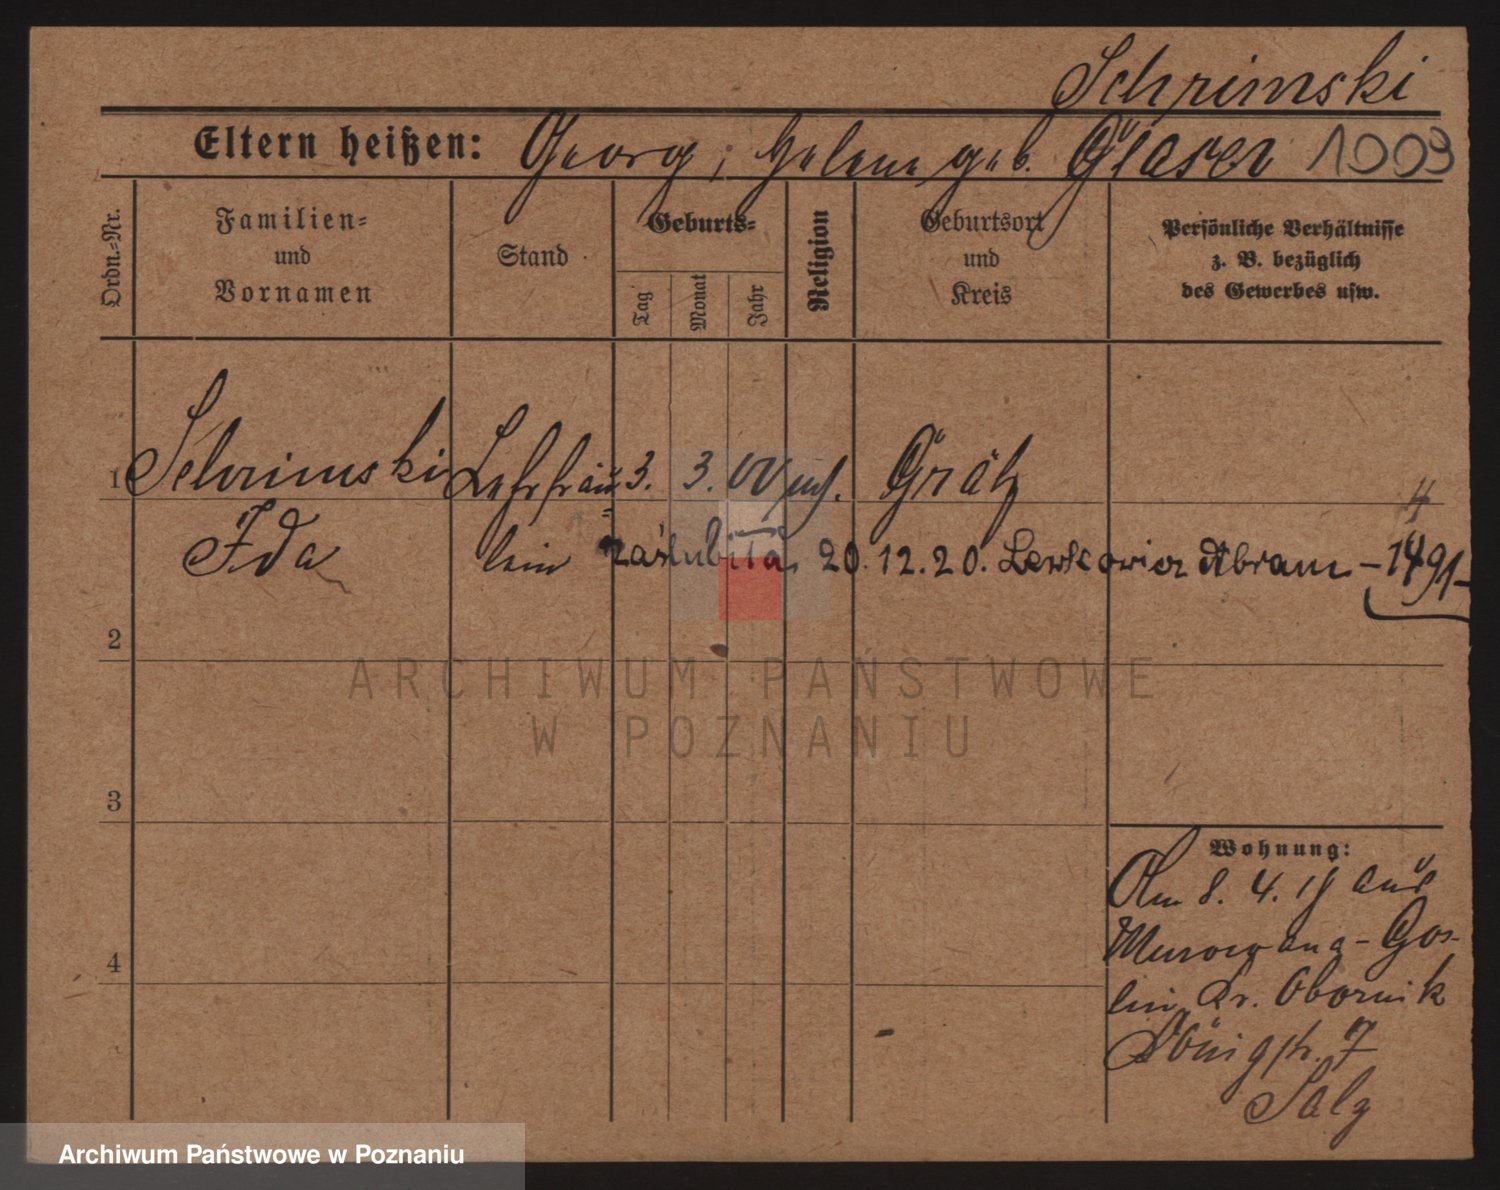 Schrimski
Eltern heißen: Georg, Helene geb. Glaser 1003
Ordn.=Nr.
Familien=
und
Vornamen
Stand
Geburts=
Tag
Monat
Jahr
Religion
Geburtsort
und
Kreis
Persönliche Verhältnisse
z. B. bezüglich
des Gewerbes usw.
1 Schrimski Lehrfräu= 3. 3. 00 jüd. Grätz
Ida lein zaślubiła 20.12.20. Lewkowicz Abram – 1491 –
2
ARCHIWUM PAŃSTWOWE
W POZNANIU
3
Wohnung:
Am 8. 4. 19 aus
Murowana-Gos-
4
lin Kr. Obornik
Königstr. 7
Salz
Archiwum Państwowe w Poznaniu